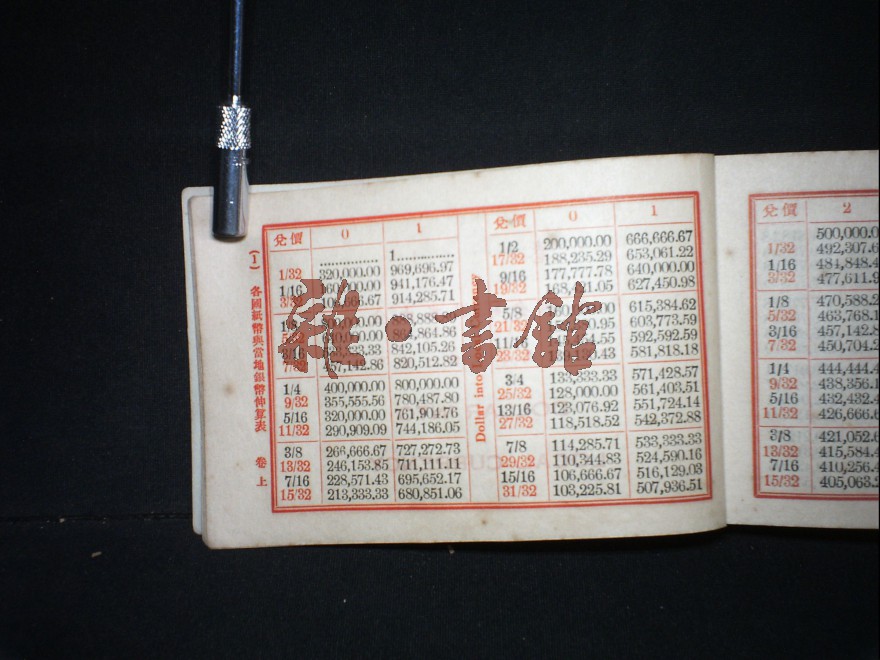 (1) 各國紙幣與當地銀幣伸算表 卷上
兌價 0 1
.............. 1..............
1/32 320,000.00 969,696.97
1/16 941,176.47
3/32 914,285.71
1/8
5/32
3/16 842,105.26
7/32 820,512.82
1/4 400,000.00 800,000.00
9/32 355,555.56 780,487.80
5/16 320,000.00 761,904.76
11/32 290,909.09 744,186.05
3/8 266,666.67 727,272.73
13/32 246,153.85 711,111.11
7/16 228,571.43 695,652.17
15/32 213,333.33 680,851.06
Dollar into
兌價 0 1
1/2 200,000.00 666,666.67
17/32 188,235.29 653,061.22
9/16 177,777.78 640,000.00
19/32 627,450.98
5/8 615,384.62
21/32 603,773.59
592,592.59
23/32 581,818.18
3/4 133,333.33 571,428.57
25/32 128,000.00 561,403.51
13/16 123,076.92 551,724.14
27/32 118,518.52 542,372.88
7/8 114,285.71 533,333.33
29/32 110,344.83 524,590.16
15/16 106,666.67 516,129.03
31/32 103,225.81 507,936.51
兌價 2
500,000.0
1/32 492,307.6
1/16 484,848.4
3/32 477,611.9
1/8 470,588.2
5/32 463,768.1
3/16 457,142.8
7/32 450,704.2
1/4 444,444.4
9/32 438,356.1
5/16 432,432.4
11/32 426,666.6
3/8 421,052.6
13/32 415,584.4
7/16 410,256.4
15/32 405,063.2
雜·書館